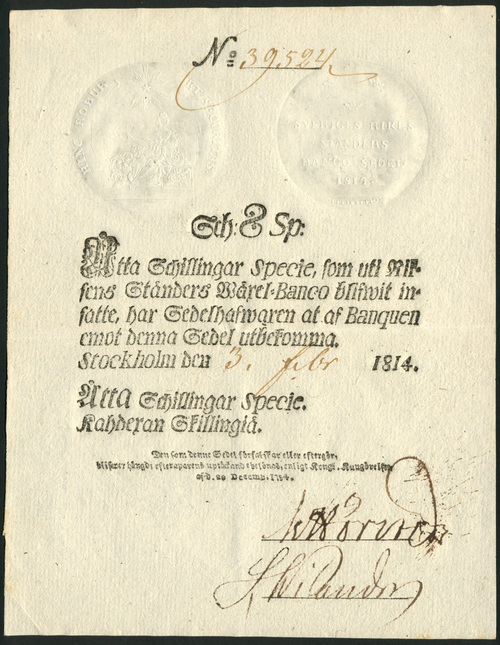 No 39,524
HINC ROBUR
SVERIGES RIKES
STÄNDERS
BANCO SEDEL
1814
Sch: 8 Sp:
Åtta Schillingar Specie, som uti Rik-
sens Ständers Wäxel-Banco blifwit in-
satte, har Sedelhafwaren at af Banquen
emot denna Sedel utbekomma.
Stockholm den 3. Febr 1814.
Åtta Schillingar Specie.
Kahdexan Skillingiä.
Den som denne Sedel förfalskar eller eftergör,
blifwer hängd; efter Kongl. Kungörelsen
af d.
Wilander